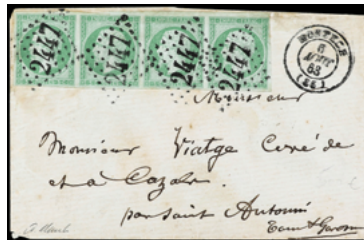 2447 2447 2447 2447
MONTECH
6
AVRIL
63
(86)
Monsieur
Monsieur Viatge Curé de
et a Cazals.
par Saint Antonin
Tarn & Garonne